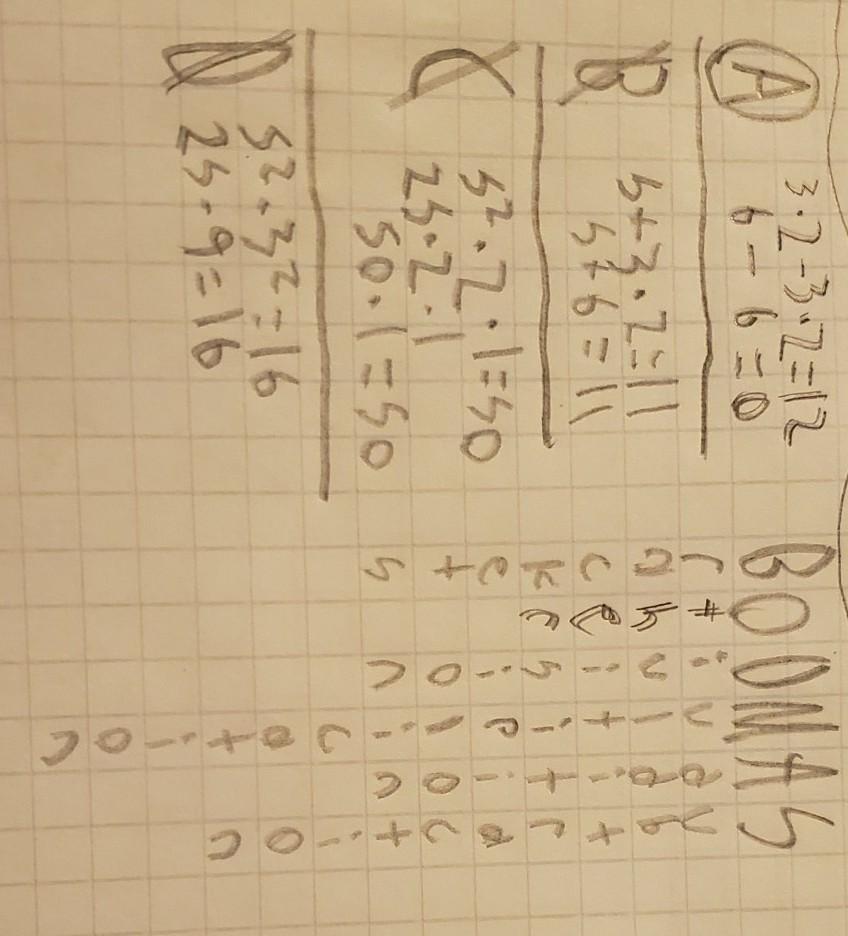 A
3·2-3·2=12
6-6=0
B
5+3·2=11
5+6=11
C
5²·2·1=50
25·2·1
50·1=50
D
5²·3²=16
25·9=16
Brackets
Other
Division
Multiplication
Addition
Subtraction